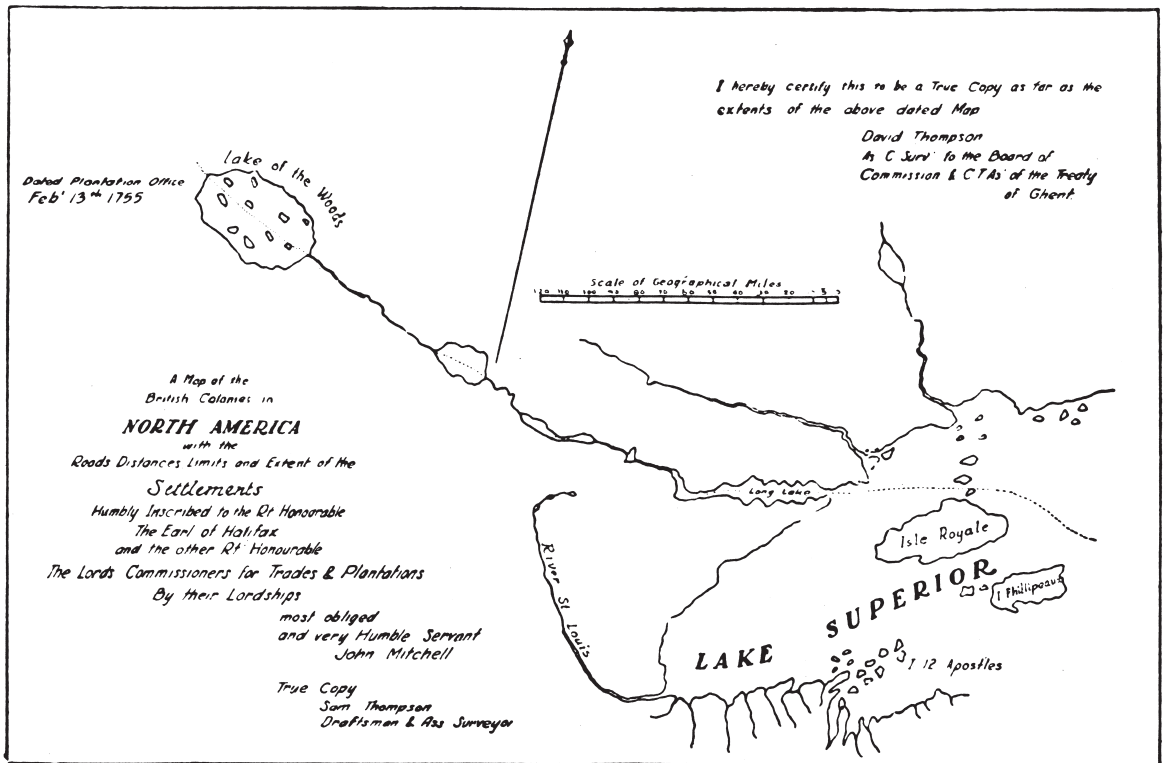 I hereby certify this to be a True Copy as far as the
extents of the above dated Map
David Thompson
As C Surv' to the Board of
Commission & CTAs' of the Treaty
of Ghent.
Lake of the Woods
Dated Plantation Office
Feb' 13th 1755
Scale of Geographical Miles
120 110 100 90 80 70 60 50 40 30 20 5 0
A Map of the
British Colonies in
NORTH AMERICA
with the
Roads Distances Limits and Extent of the
Settlements
Humbly Inscribed to the Rt Honourable
The Earl of Halifax
and the other Rt Honourable
The Lords Commissioners for Trades & Plantations
By their Lordships
most obliged
and very Humble Servant
John Mitchell
True Copy
Sam Thompson
Draftsman & Ass Surveyor
Long Lake
River St Louis
Isle Royale
I Phillipeaux
LAKE SUPERIOR
I 12 Apostles